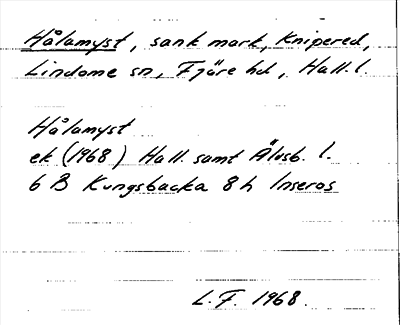 Hålamyst, sank mark, Knipered,
Lindome sn, Fjäre hd, Hall. l.
Hålamyst
ek (1968) Hall. samt Älvsb. l.
6 B Kungsbacka 8 h Inseros
L. F. 1968.